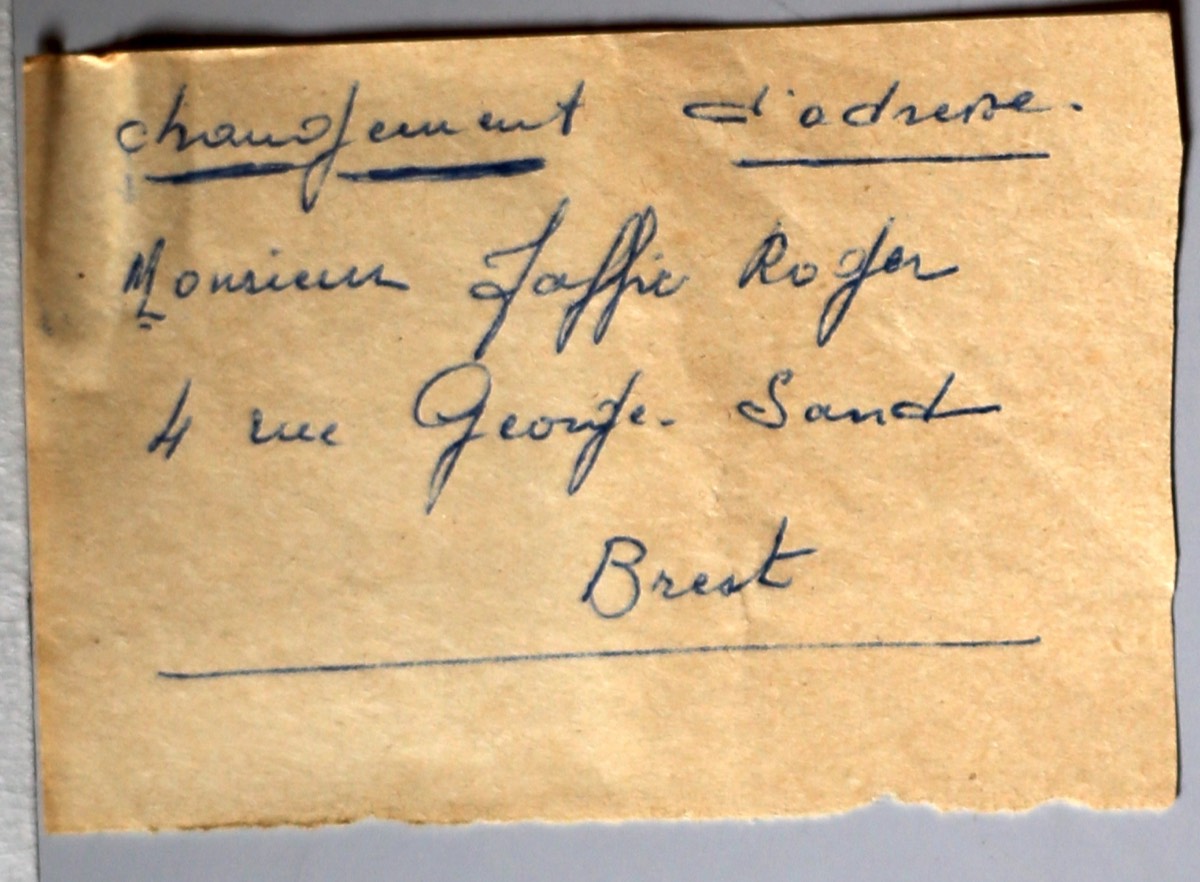 changement d'adresse.
Monsieur Jaffré Roger
4 rue George. Sand
Brest